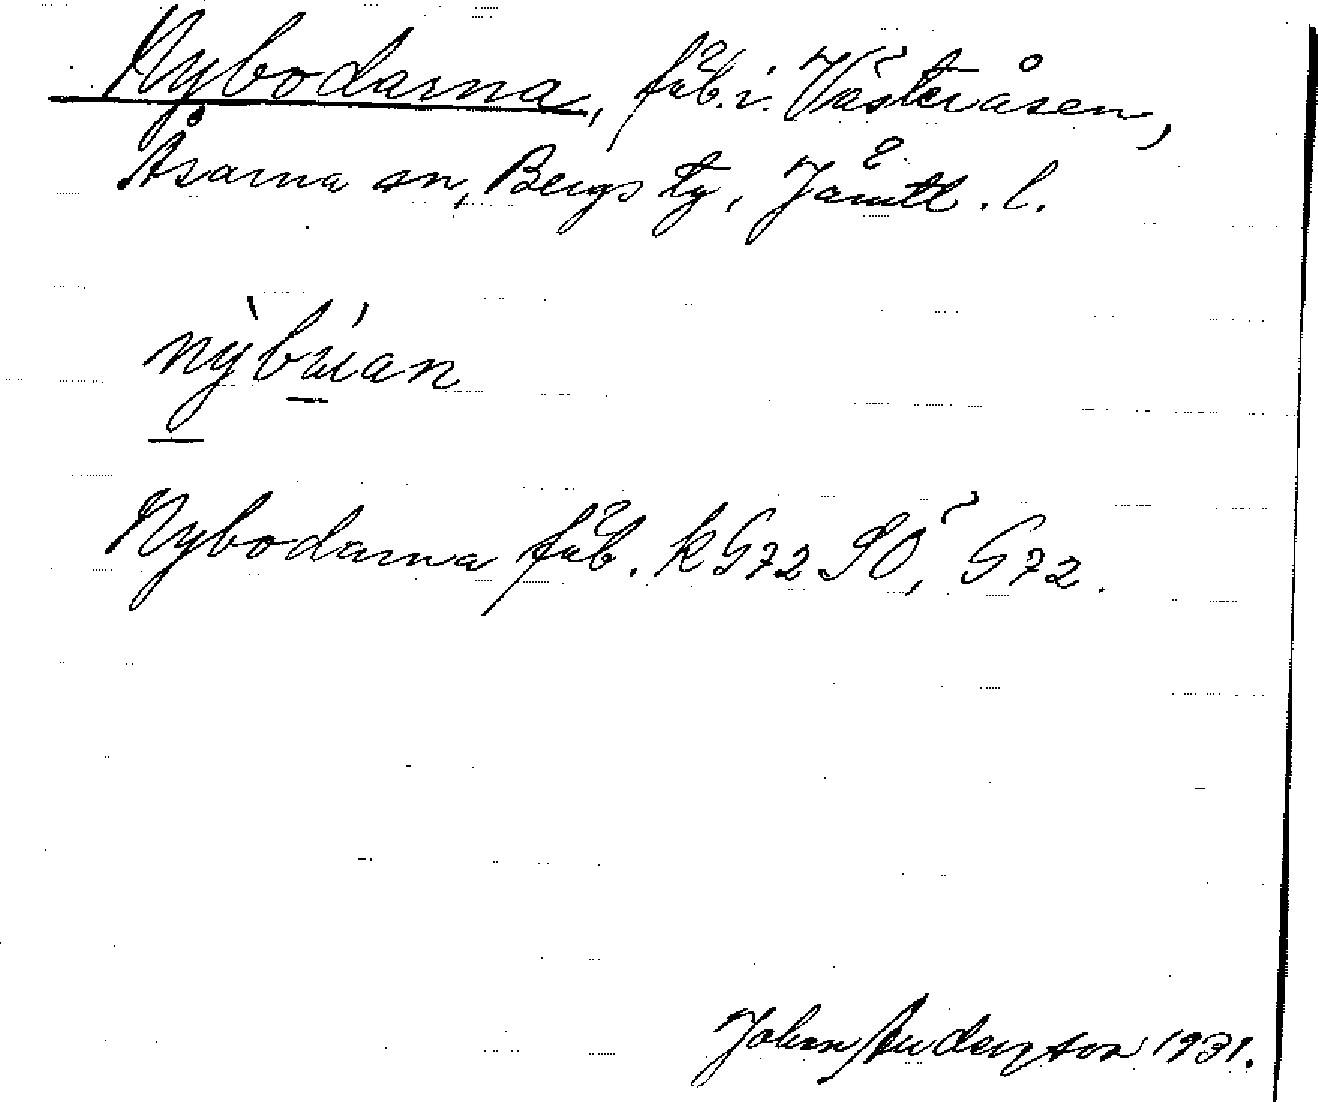 Nybodarna, fäb. i Västeråsen,
Åsarna sn, Bergs tg, Jämtl. l.
nỳbúan
Nybodarna fäb. kG72SO, G72.
Johan Anderzson 1931.